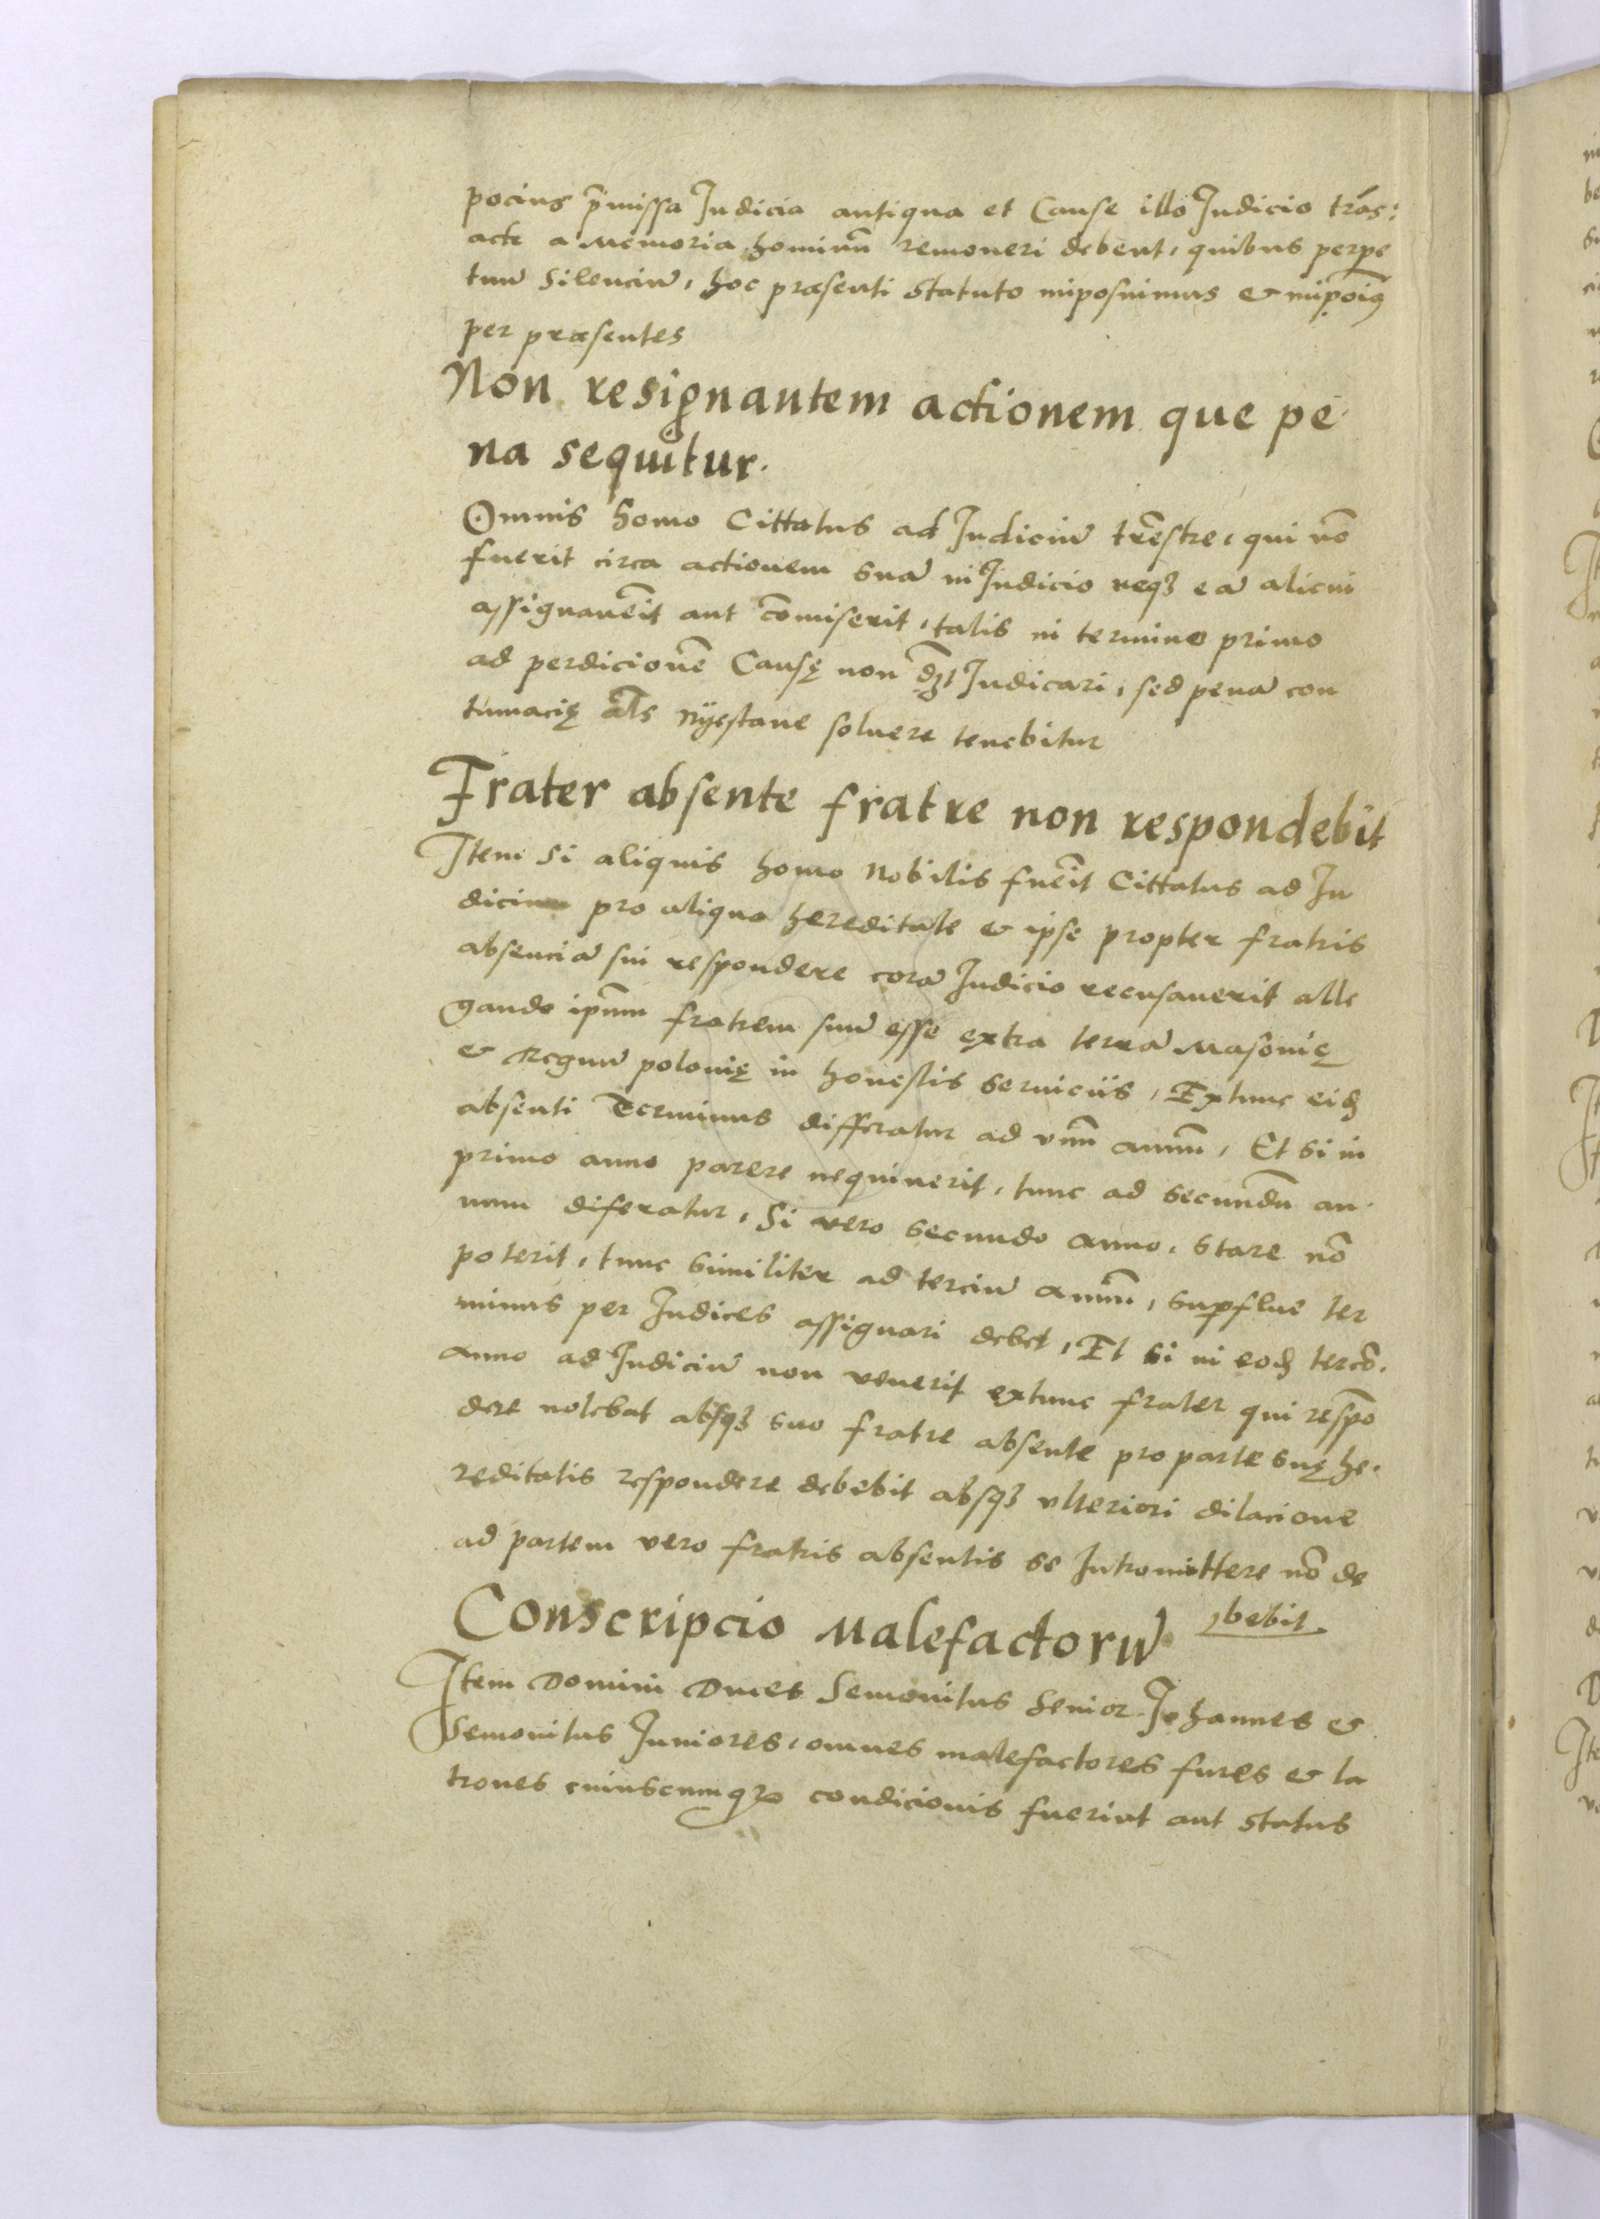 pocius p̄missa Judicia antiqua et Cause illo Judicio trās:
acte a Memoria hominū remoueri debent, quibus perpe
tuū Silenciū, hoc præsenti Statuto imposuimus & impoīꝯ
per præsentes
Non resignantem actionem que pe
na sequitur.
Omnis homo Cittatus ad Judiciū trēstre, qui nō
fuerit circa actionem suā in Judicio neqꝫ eā alicui
assignauēit aut cōmiserit, talis in termino primo
ad perdicionē Causę non dꝫt Judicari, sed penā con
tumacię als nyestane soluere tenebitur
Frater absente fratre non respondebit
Item si aliquis homo Nobilis fuēit Cittatus ad Ju
dicium pro aliqua hereditate & ipse propter fratris
absenciā sui respondere corā Judicio recusauerit alle
gando ipsm̄ fratrem suū esse extra terrā Masouię
& Regnū polonię in honestis seruiciis, Extunc eidꝫ
absenti Terminus differatur ad vnū annū, Et si in
primo anno parere nequiuerit, tunc ad secundū an-
num diferatur, Si vero secundo anno, stare nō
poterit, tunc similiter ad terciū annū, supflue ter
minus per Judices assignari debet, Et si in eodꝫ tercō.
anno ad Judiciū non venerit extunc frater qui respō
dere nolebat absqꝫ suo fratre absente pro parte suę he-
reditatis respondere debebit absqꝫ vlteriori dilacione
ad partem vero fratris absentis se Intromittere nō de
bebit
Conscripcio Malefactorū
Item Domini Duces Semouitus Senior Johannes &
Semouitus Juniores, omnes malefactores fures & la
trones cuiuscumqꝫ condicionis fuerint aut status